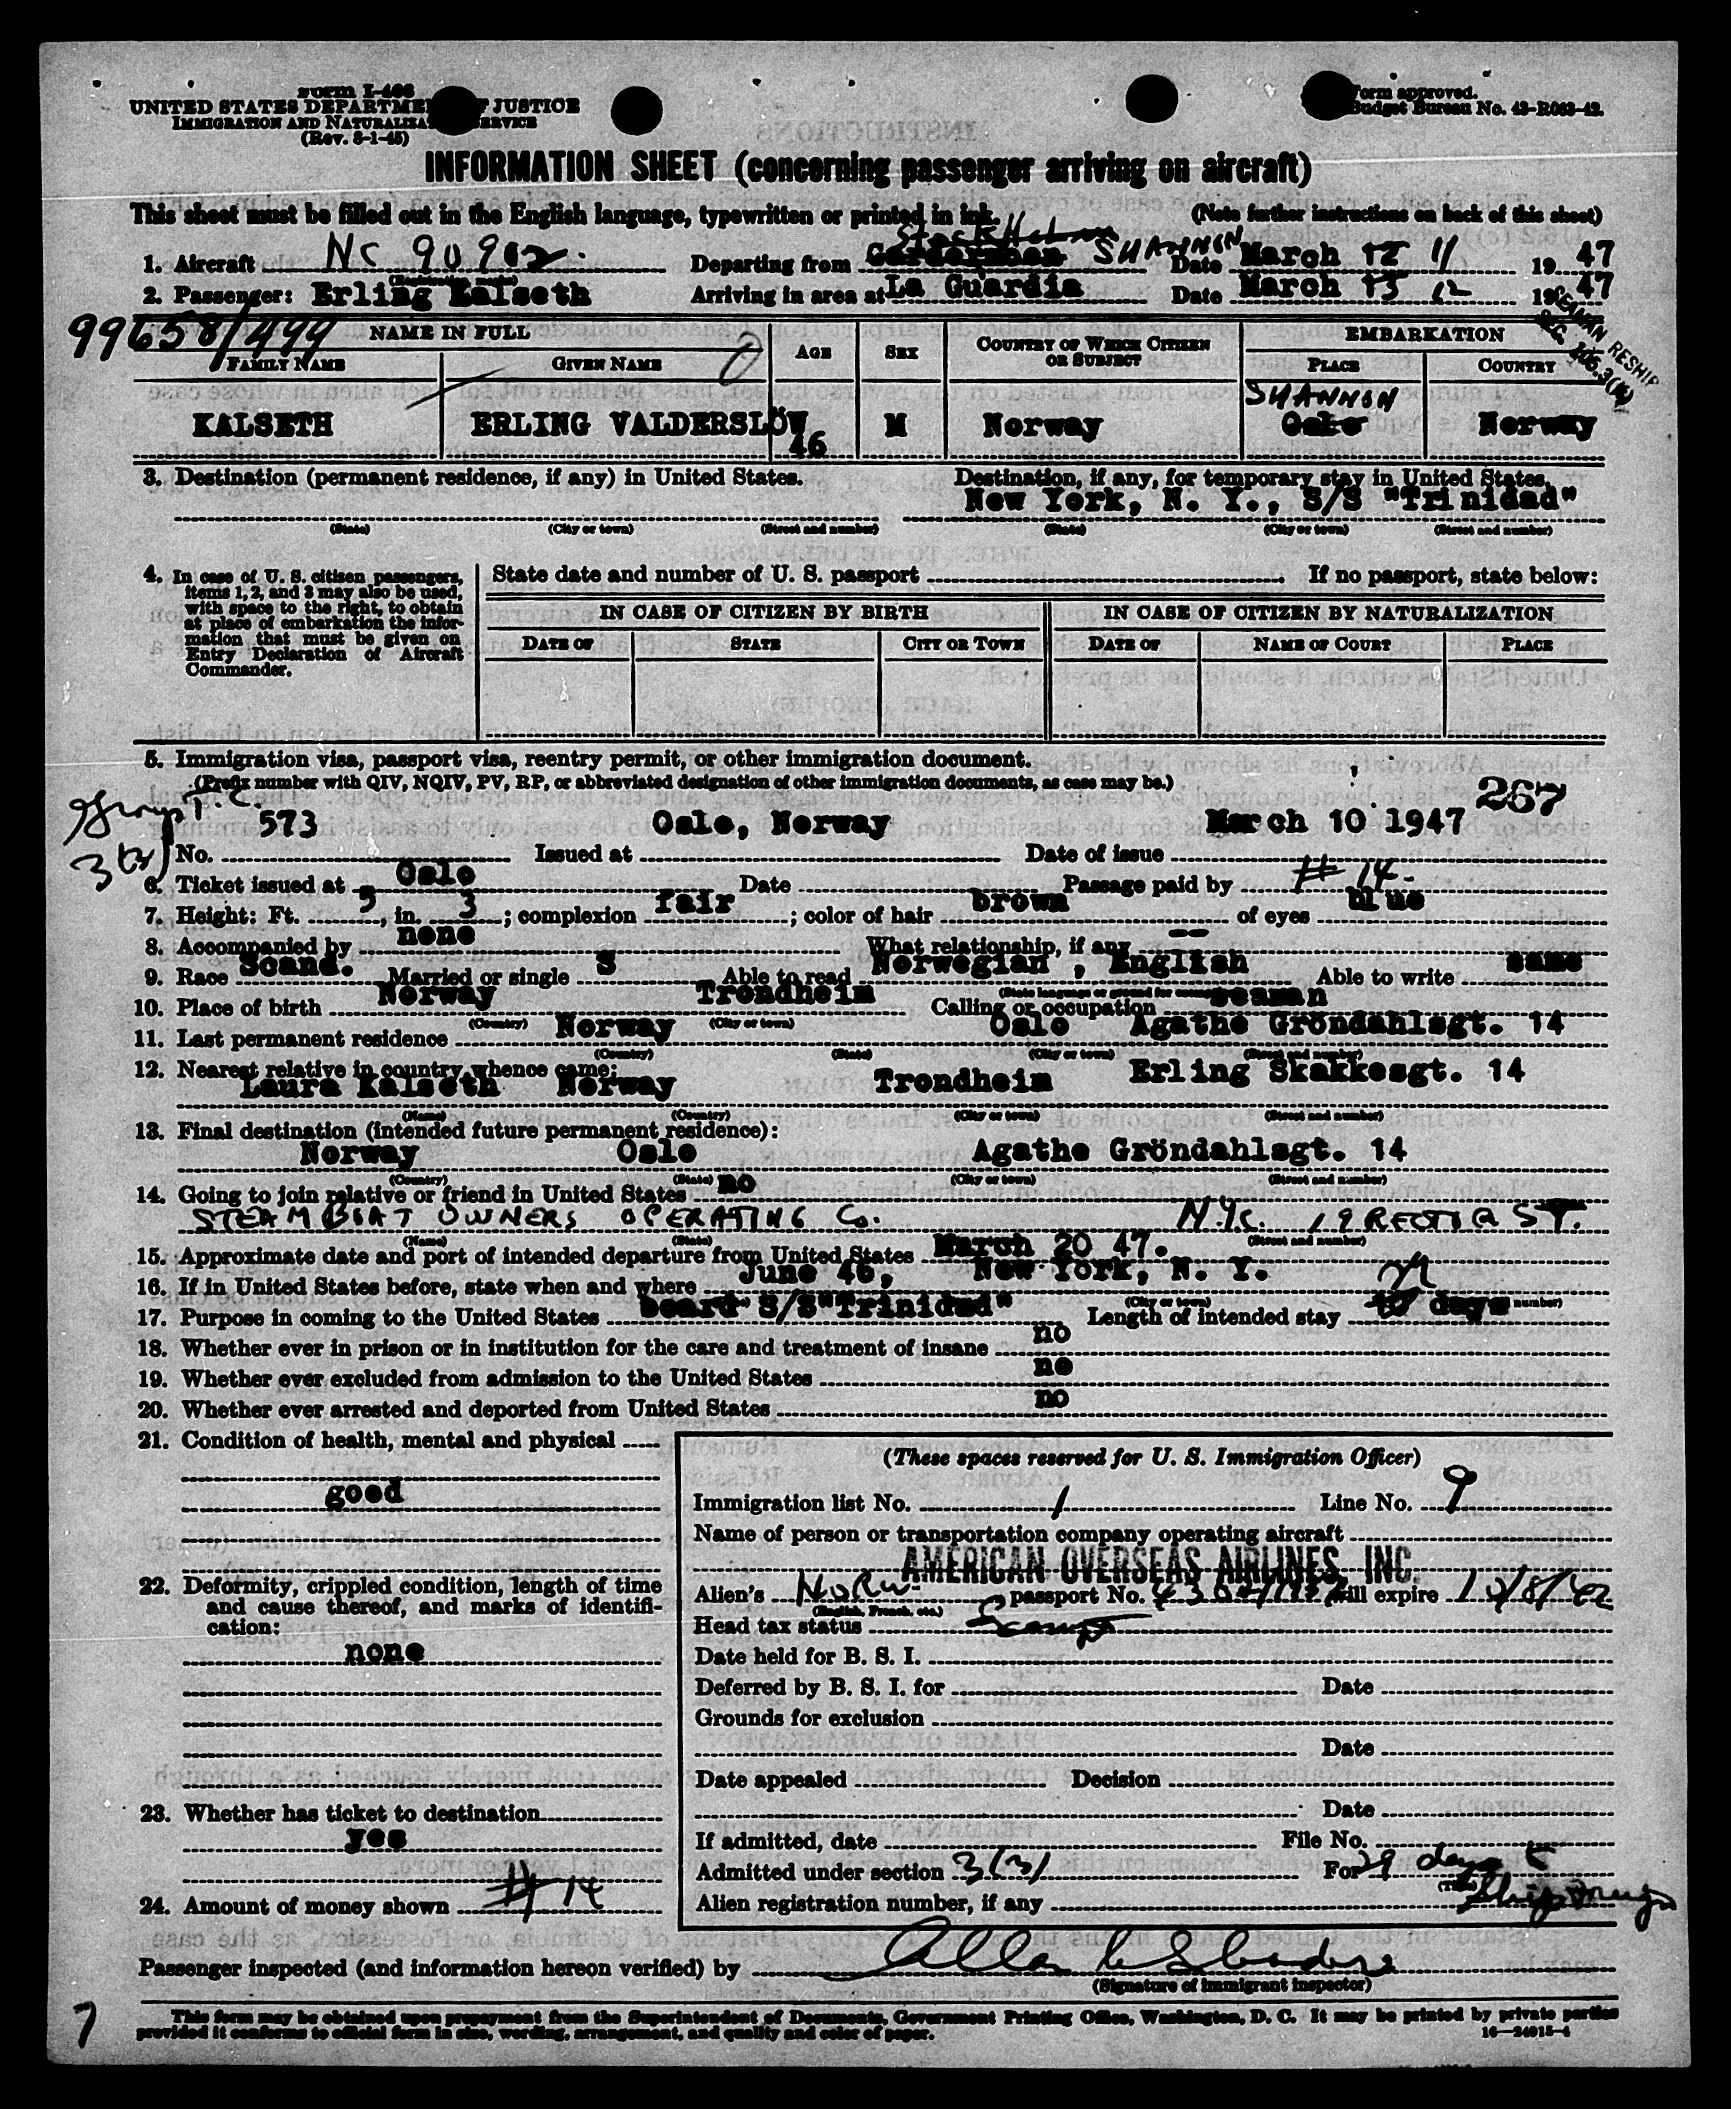 Form I-466
UNITED STATES DEPARTMENT OF JUSTICE
IMMIGRATION AND NATURALIZATION SERVICE
(Rev. 8-1-45)
Form approved.
Budget Bureau No. 43-R063-42.
INFORMATION SHEET (concerning passenger arriving on aircraft)
This sheet must be filled out in the English language, typewritten or printed in ink.
(Note further instructions on back of this sheet)
1. Aircraft NC 90902 Departing from Gardermoen Stockholm SHANNON Date March 12 11 1947
2. Passenger: Erling Kalseth Arriving in area at La Guardia Date March 13 12 1947
SEAMAN RESHIP
99658/499
NAME IN FULL
AGE
SEX
COUNTRY OF WHICH CITIZEN OR SUBJECT
EMBARKATION
FAMILY NAME GIVEN NAME PLACE COUNTRY
SHANNON
KALSETH ERLING VALDERSLÖV 46 M Norway Oslo Norway
3. Destination (permanent residence, if any) in United States. Destination, if any, for temporary stay in United States.
New York, N. Y., S/S "Trinidad"
(State) (City or town) (Street and number) (State) (City or town) (Street and number)
4. In case of U. S. citizen passengers, items 1, 2, and 3 may also be used, with space to the right, to obtain at place of embarkation the information that must be given on Entry Declaration of Aircraft Commander.
State date and number of U. S. passport If no passport, state below:
IN CASE OF CITIZEN BY BIRTH IN CASE OF CITIZEN BY NATURALIZATION
DATE OF STATE CITY OR TOWN DATE OF NAME OF COURT PLACE
5. Immigration visa, passport visa, reentry permit, or other immigration document.
(Prefix number with QIV, NQIV, PV, RP, or abbreviated designation of other immigration documents, as case may be.)
267
573 Oslo, Norway March 10 1947
No. Issued at Date of issue
6. Ticket issued at Oslo Date Passage paid by # 14-
7. Height: Ft. 5, in. 3; complexion fair; color of hair brown of eyes blue
8. Accompanied by none What relationship, if any --
9. Race Scand. Married or single S Able to read Norwegian, English Able to write same
10. Place of birth Norway Trondheim Calling or occupation seaman
(Country) (City or town)
11. Last permanent residence Norway Oslo Agathe Gröndahlsgt. 14
(Country) (State) (City or town) (Street and number)
12. Nearest relative in country whence came:
Laura Kalseth Norway Trondheim Erling Skakkesgt. 14
(Name) (Country) (City or town) (Street and number)
13. Final destination (intended future permanent residence):
Norway Oslo Agathe Gröndahlsgt. 14
(Country) (State) (City or town) (Street and number)
14. Going to join relative or friend in United States no
STEAMBOAT OWNERS OPERATING Co. N.Y.C. 19 RECTOR ST.
(Name) (State) (Street and number)
15. Approximate date and port of intended departure from United States March 20 47.
16. If in United States before, state when and where June 46, New York, N. Y.
(City or town) number)
17. Purpose in coming to the United States board S/S "Trinidad" Length of intended stay days
18. Whether ever in prison or in institution for the care and treatment of insane no
19. Whether ever excluded from admission to the United States no
20. Whether ever arrested and deported from United States no
21. Condition of health, mental and physical
good
22. Deformity, crippled condition, length of time and cause thereof, and marks of identification:
none
23. Whether has ticket to destination
yes
24. Amount of money shown # 14
(These spaces reserved for U. S. Immigration Officer)
Immigration list No. 1 Line No. 9
Name of person or transportation company operating aircraft
AMERICAN OVERSEAS AIRLINES, INC.
Alien's NORW. passport No. will expire
(English, French, etc.)
Head tax status Exempt
Date held for B. S. I.
Deferred by B. S. I. for Date
Grounds for exclusion
Date
Date appealed Decision
Date
If admitted, date File No.
Admitted under section 3(3) For 29 days
(Time)
Alien registration number, if any
Passenger inspected (and information hereon verified) by
(Signature of immigrant inspector)
This form may be obtained upon prepayment from the Superintendent of Documents, Government Printing Office, Washington, D. C. It may be printed by private parties
provided it conforms to official form in size, wording, arrangement, and quality and color of paper.
16—24915-4
7